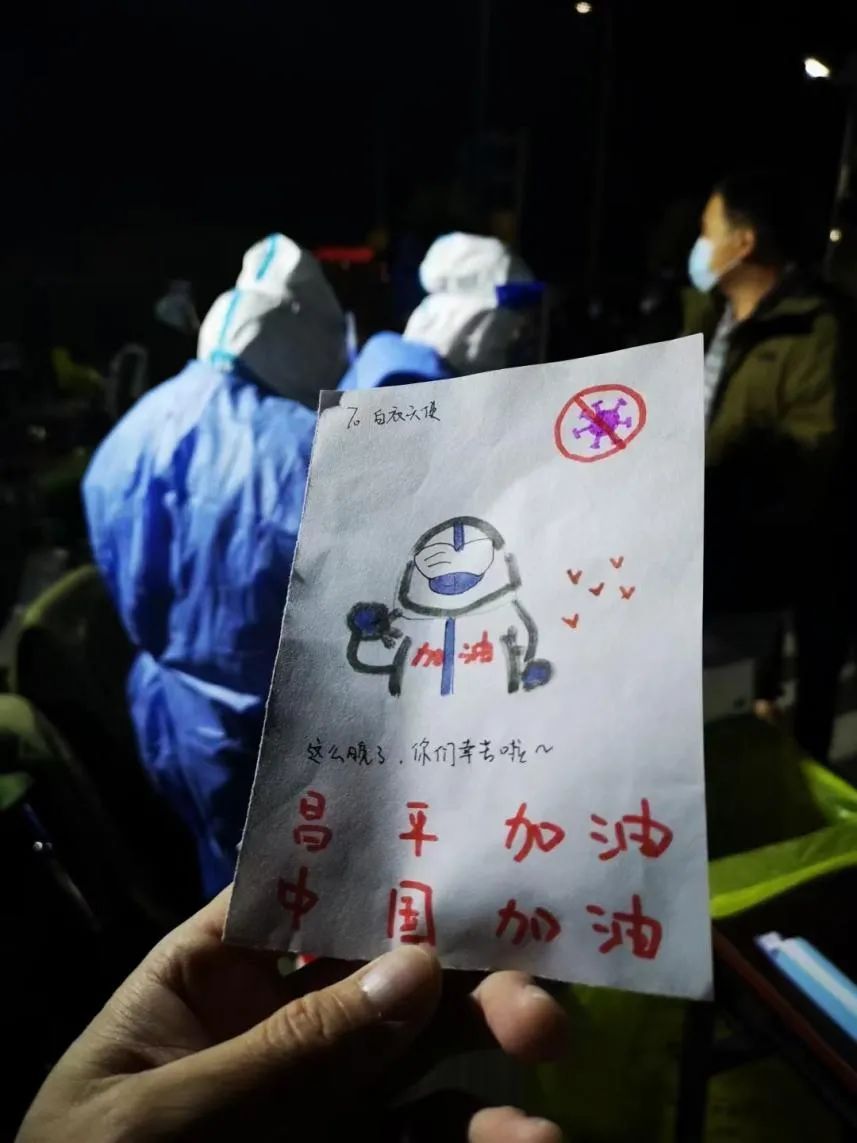 To 白衣天使
加油
这么晚了，你们幸苦啦～
昌平加油
中国加油